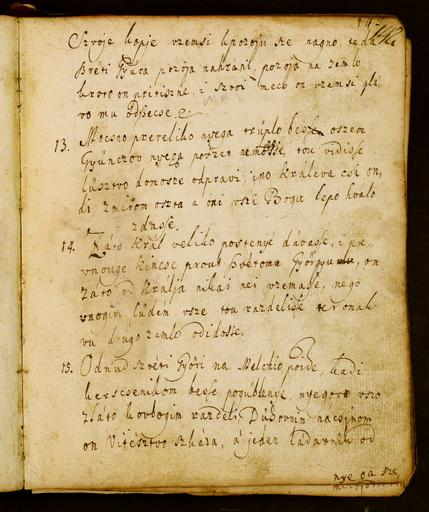 Szvoje kopje vzemsi k pozoju sze nagno, teda
Szvéti Gyüra pozoja nahráni, pozoja na zemlo
kroto on pritiszne, i szvoi mecs on vzemsi glá-
vo mu odszecse.
13. Mocsno preveliko nyega truplo besse oszem
Gyünczov nyega povzet nemosse, tou vidisse
lüsztvo domo odpravi, ino Králeva csi on-
di zmirom oszta a oni vszi Bogu lepo hválo
zdasse.
14. Záto Král veliko postenyé dávasse, i pre-
vnouge kincse prout Szvétomu Györgyu, on
záto od Krália nikai nei vzemasse, nego
vnogim lüdém vsze tou razdelisse ter onak
vu drügo zemlo odidosse.
15. Odnud szvéti Győri na Melchio poide, kadi
kerscsenikom besse pogüblenye, nyegovo vszo
zláto vbogim razdeli, Dühovnim nacsinom
on Vitésztvo szkáza, á jeden ládavnik od
nyega sze